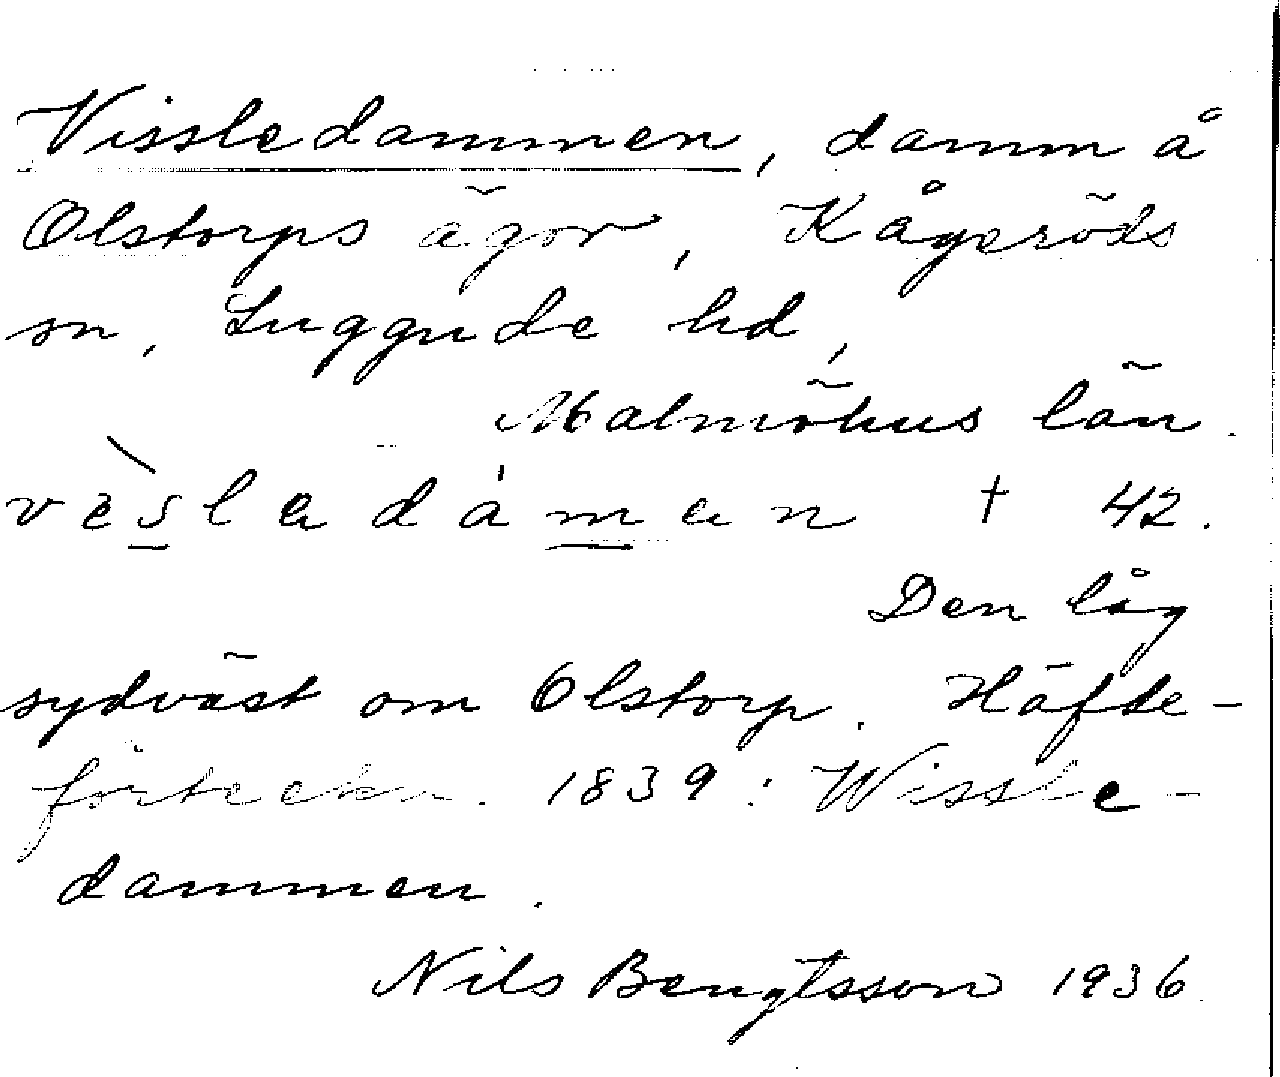 Vissledammen, damm å
Olstorps ägor, Kågeröds
sn, Luggude hd,
Malmöhus län.
vès̲ladám̲an † 42.
Den låg
sydväst om Olstorp. Häfte-
förteckn. 1839: Wissle-
dammen.
Nils Bengtsson 1936